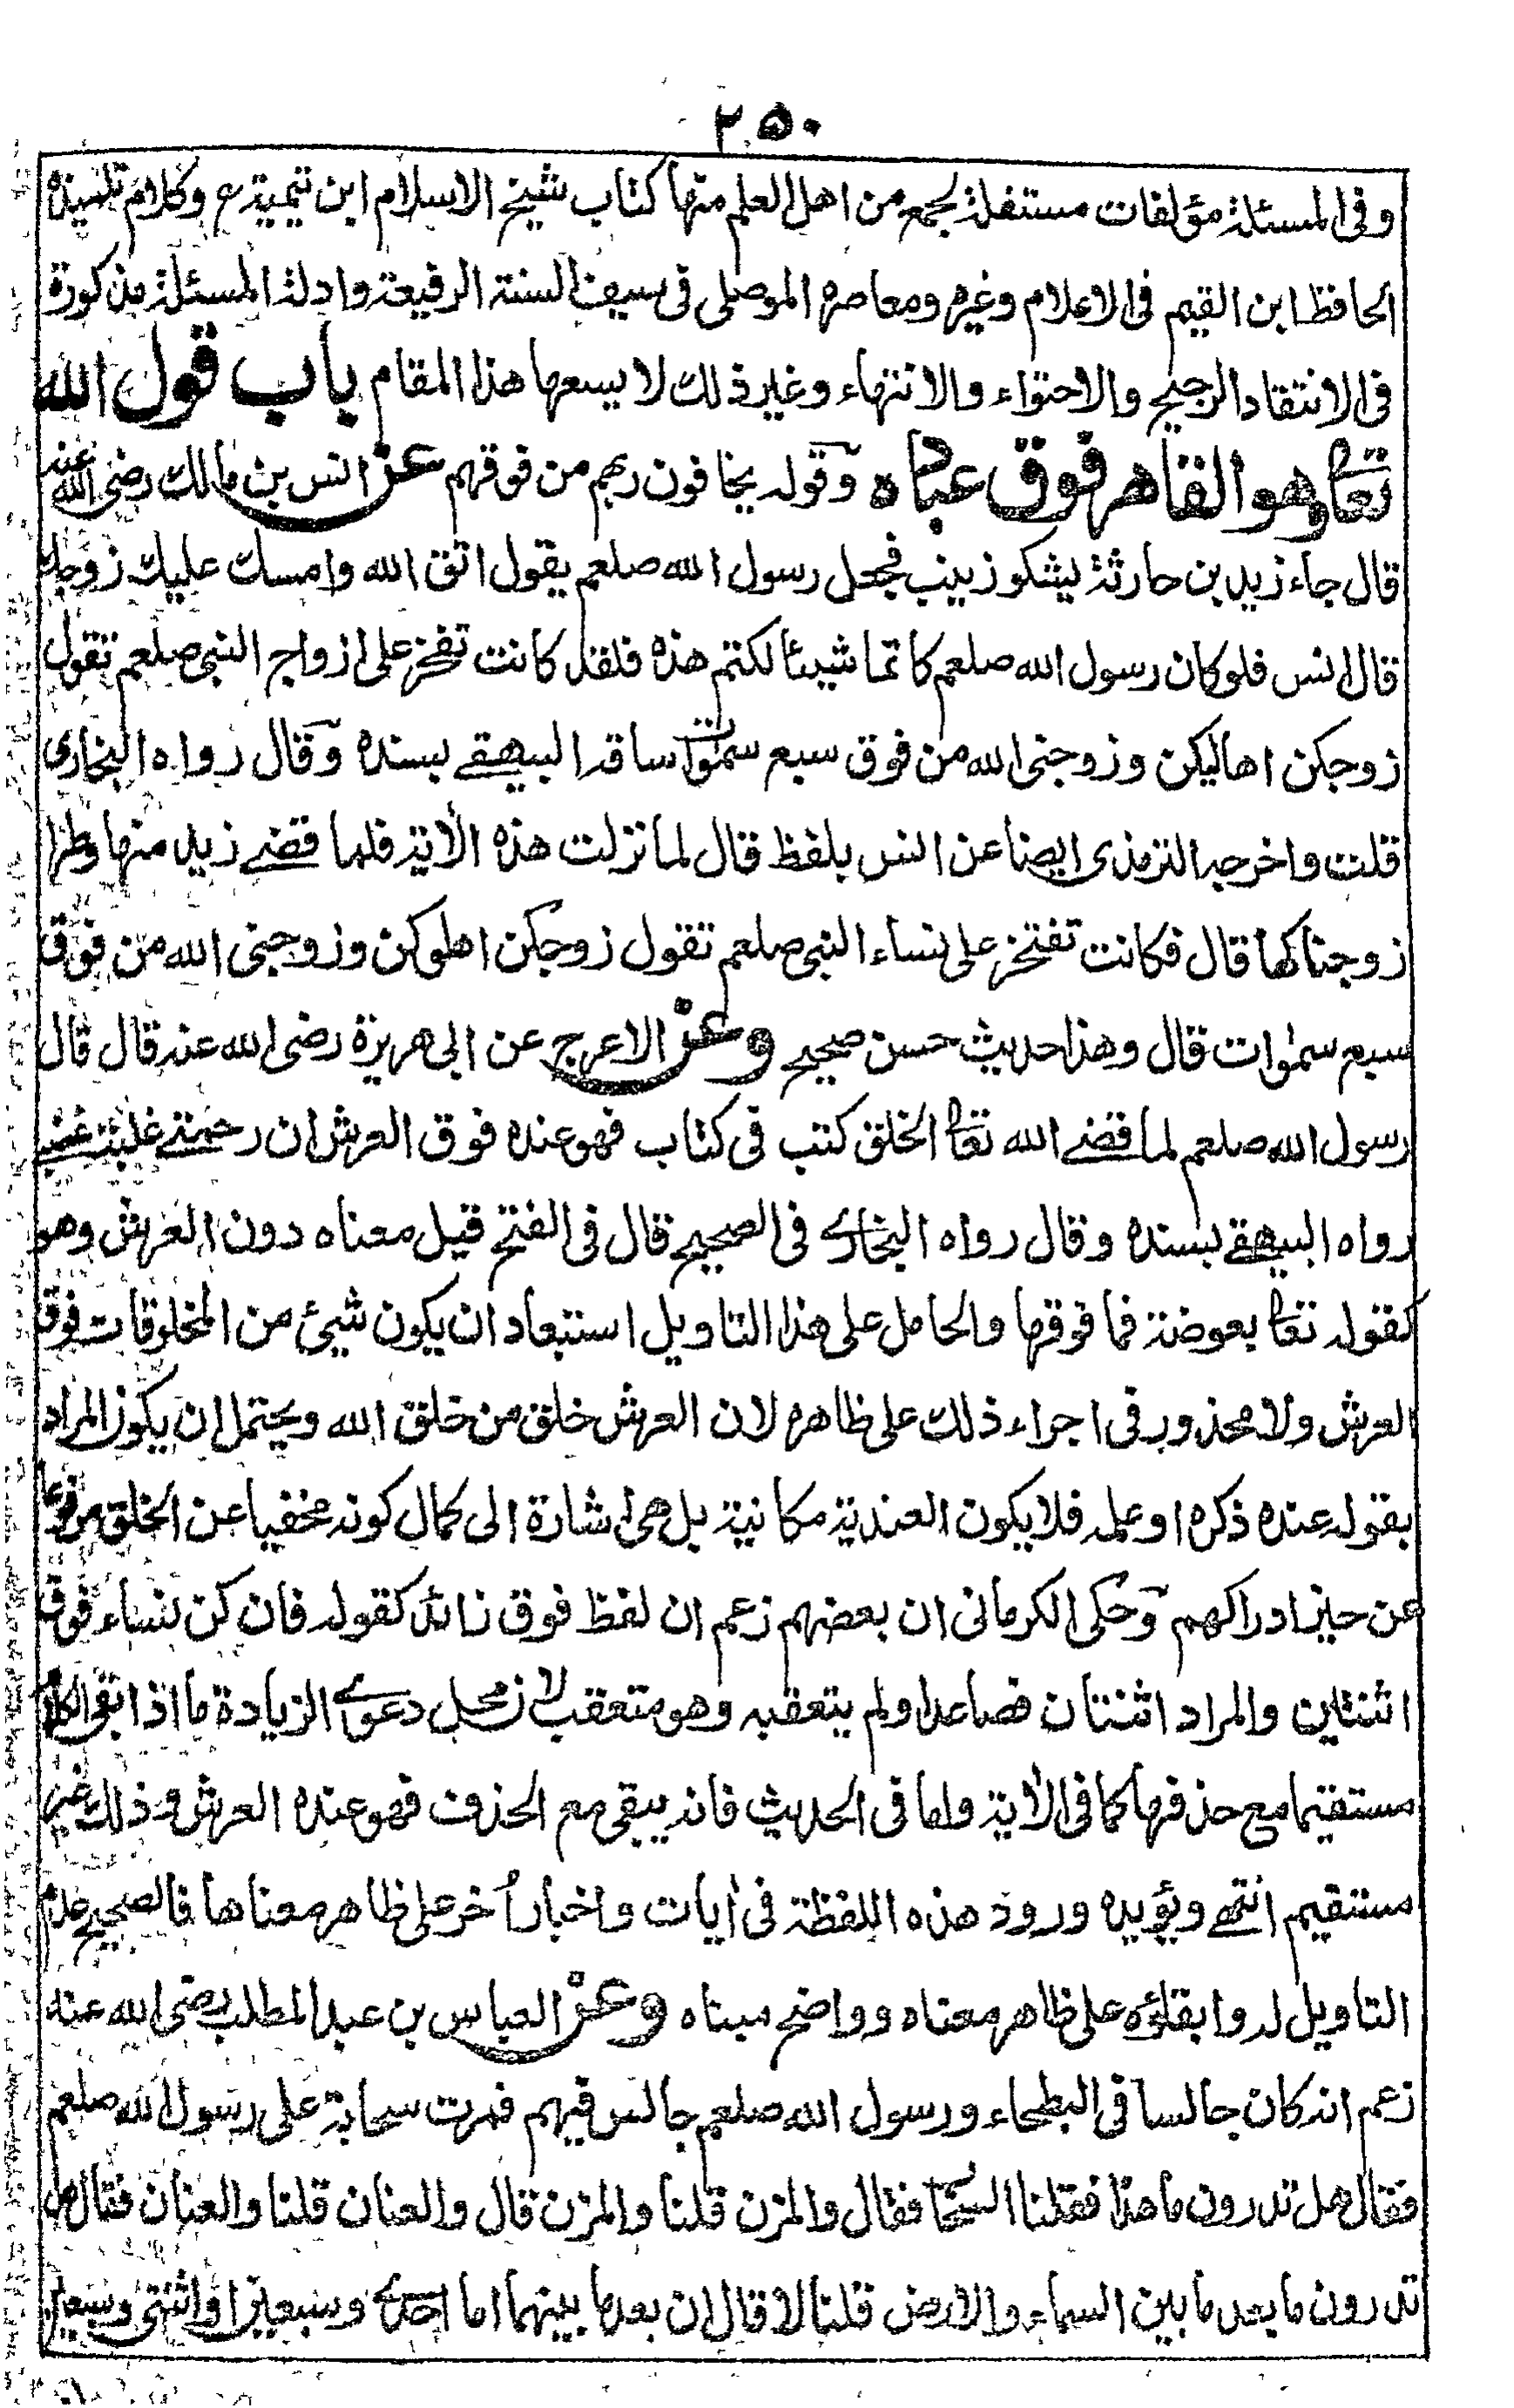 ٢٥٠
وفى المسئلة مؤلفات مستقلة لجمع من اهل العلم منها كتاب شيخ الاسلام ابن تيمية رح وكلام تلميذه
الحافظ ابن القيم فى الاعلام وغيره ومعاصره الموصلى فى سيف السنة الرفيعة وادلة المسئلة مذكورة
فى الانتقاد الرجيح والاحتواء والانتهاء وغير ذلك لا يسعها هذا المقام باب قول الله
تعالى وهو القاهر فوق عباده وقوله يخافون ربهم من فوقهم عن انس بن مالك رضى الله عنه
قال جاء زيد بن حارثة يشكو زينب فجعل رسول الله صلعم يقول اتق الله وامسك عليك زوجك
قال انس فلو كان رسول الله صلعم كاتما شيئا لكتم هذه فلقد كانت تفخر على ازواج النبى صلعم تقول
زوجكن اهاليكن وزوجنى الله من فوق سبع سموات ساقه البيهقے بسنده وقال رواه البخارى
قلت واخرجه الترمذى ايضا عن انس بلفظ قال لما نزلت هذه الآية فلما قضے زيد منها وطرا
زوجناكها قال فكانت تفتخر على نساء النبى صلعم تقول زوجكن اهلوكن وزوجنى الله من فوق
سبع سموات قال وهذا حديث حسن صحيح وعن الاعرج عن ابى هريرة رضى الله عنه قال قال
رسول الله صلعم لما قضے الله تعالى الخلق كتب فى كتاب فهو عنده فوق العرش ان رحمتے غلبت غضبے
رواه البيهقے بسنده وقال رواه البخارے فى الصحيح قال فى الفتح قيل معناه دون العرش وهو
كقوله تعالى بعوضة فما فوقها والحامل على هذا التاويل استبعاد ان يكون شيئ من المخلوقات فوق
العرش ولا محذور فى اجراء ذلك على ظاهره لان العرش خلق من خلق الله ويحتمل ان يكون المراد
بقوله عنده ذكره او علمه فلا يكون العندية مكانية بل هى اشارة الى كمال كونه مخفيا عن الخلق مرفوعا
عن حيز ادراكهم وحكى الكرمانى ان بعضهم زعم ان لفظ فوق زائد كقوله فان كن نساء فوق
اثنتين والمراد اثنتان فصاعدا ولم يتعقبه وهو متعقب لان محل دعوے الزيادة ما اذا بقى الكلام
مستقيما مع حذفها كما فى الآية واما فى الحديث فانه يبقى مع الحذف فهو عنده العرش وذلك غير
مستقيم انتهے ويؤيده ورود هذه اللفظة فى آيات واخبار اُخر على ظاهر معناها فالصحيح عدم
التاويل له وابقاؤه على ظاهر معناه وواضح مبناه وعن العباس بن عبد المطلب رضى الله عنه
زعم انه كان جالسا فى البطحاء ورسول الله صلعم جالس فيهم فمرت سحابة على رسول الله صلعم
فقال هل تدرون ما هذا فقلنا السحاب فقال والمزن قلنا والمزن قال والعنان قلنا والعنان فقال هل
تدرون ما بعد ما بين السماء والارض قلنا لا قال ان بعد ما بينهما اما احدے وسبعين او اثنتى وسبعين